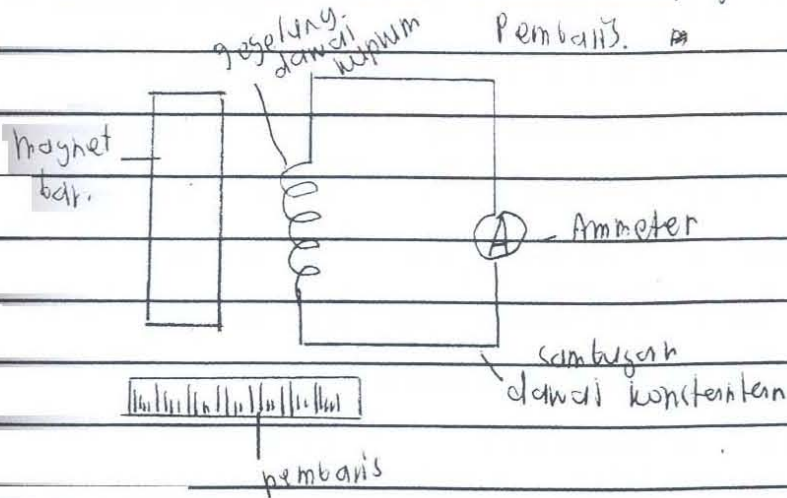 Pembaris.
gegelung
dawai
kuprum
magnet
bar.
A
Ammeter
sambungan
dawai konstantan
pembaris